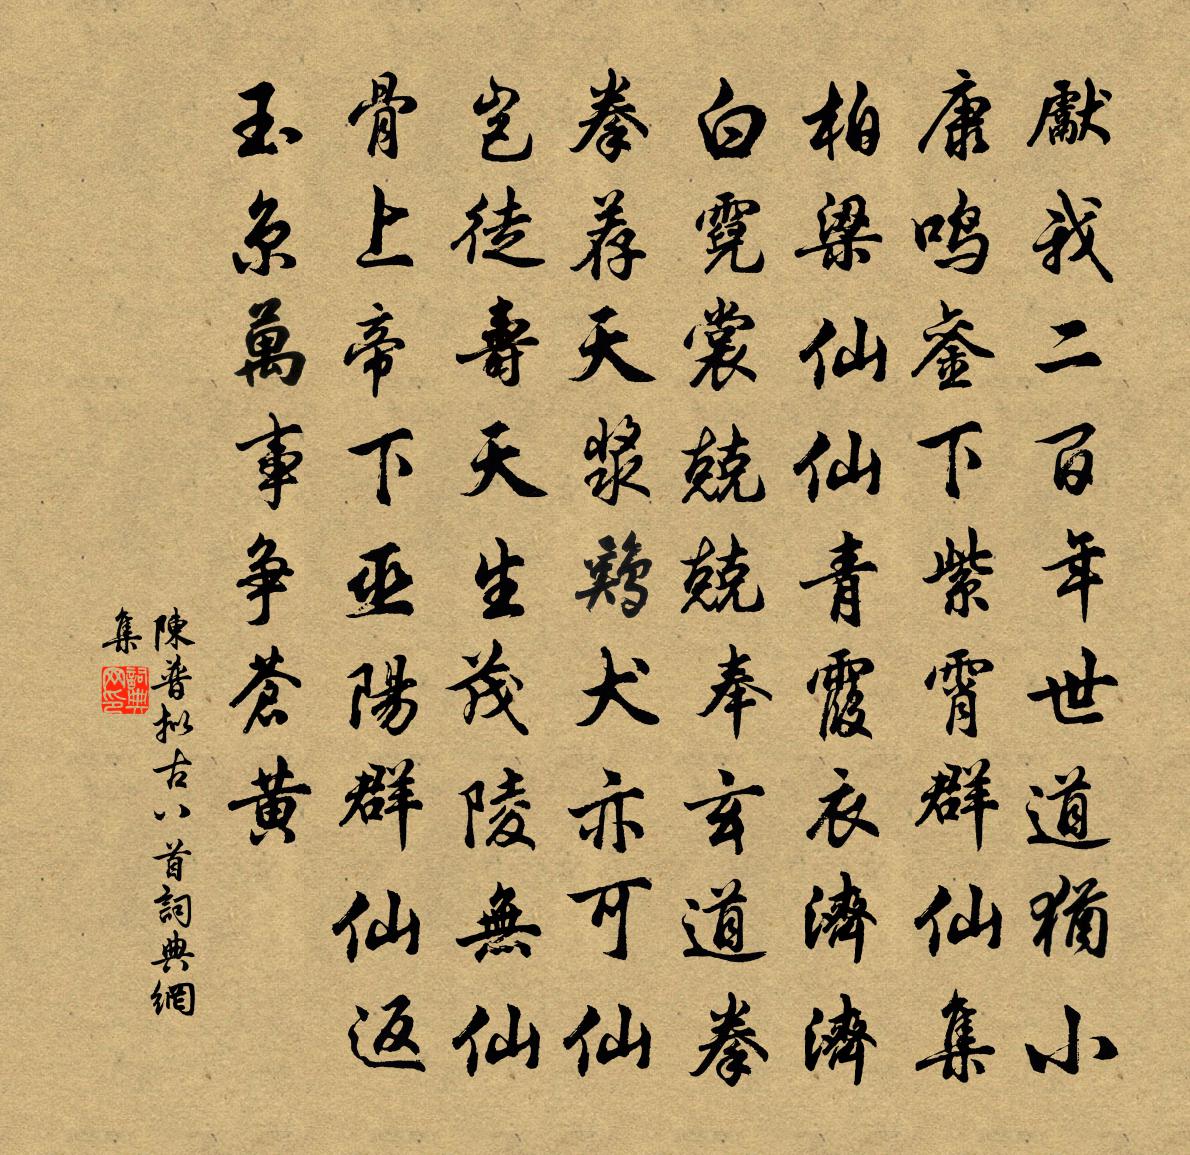 獻我二百年世道猶小
康鳴鑾下紫霄群仙集
柏梁仙仙青霞衣濟濟
白霓裳兢兢奉玄道拳
拳荐天漿鷄犬亦可仙
豈徒壽天生茂陵無仙
骨上帝下巫陽群仙返
玉京萬事争蒼黄
陳普拟古八首詞典網
集
詞典
网印